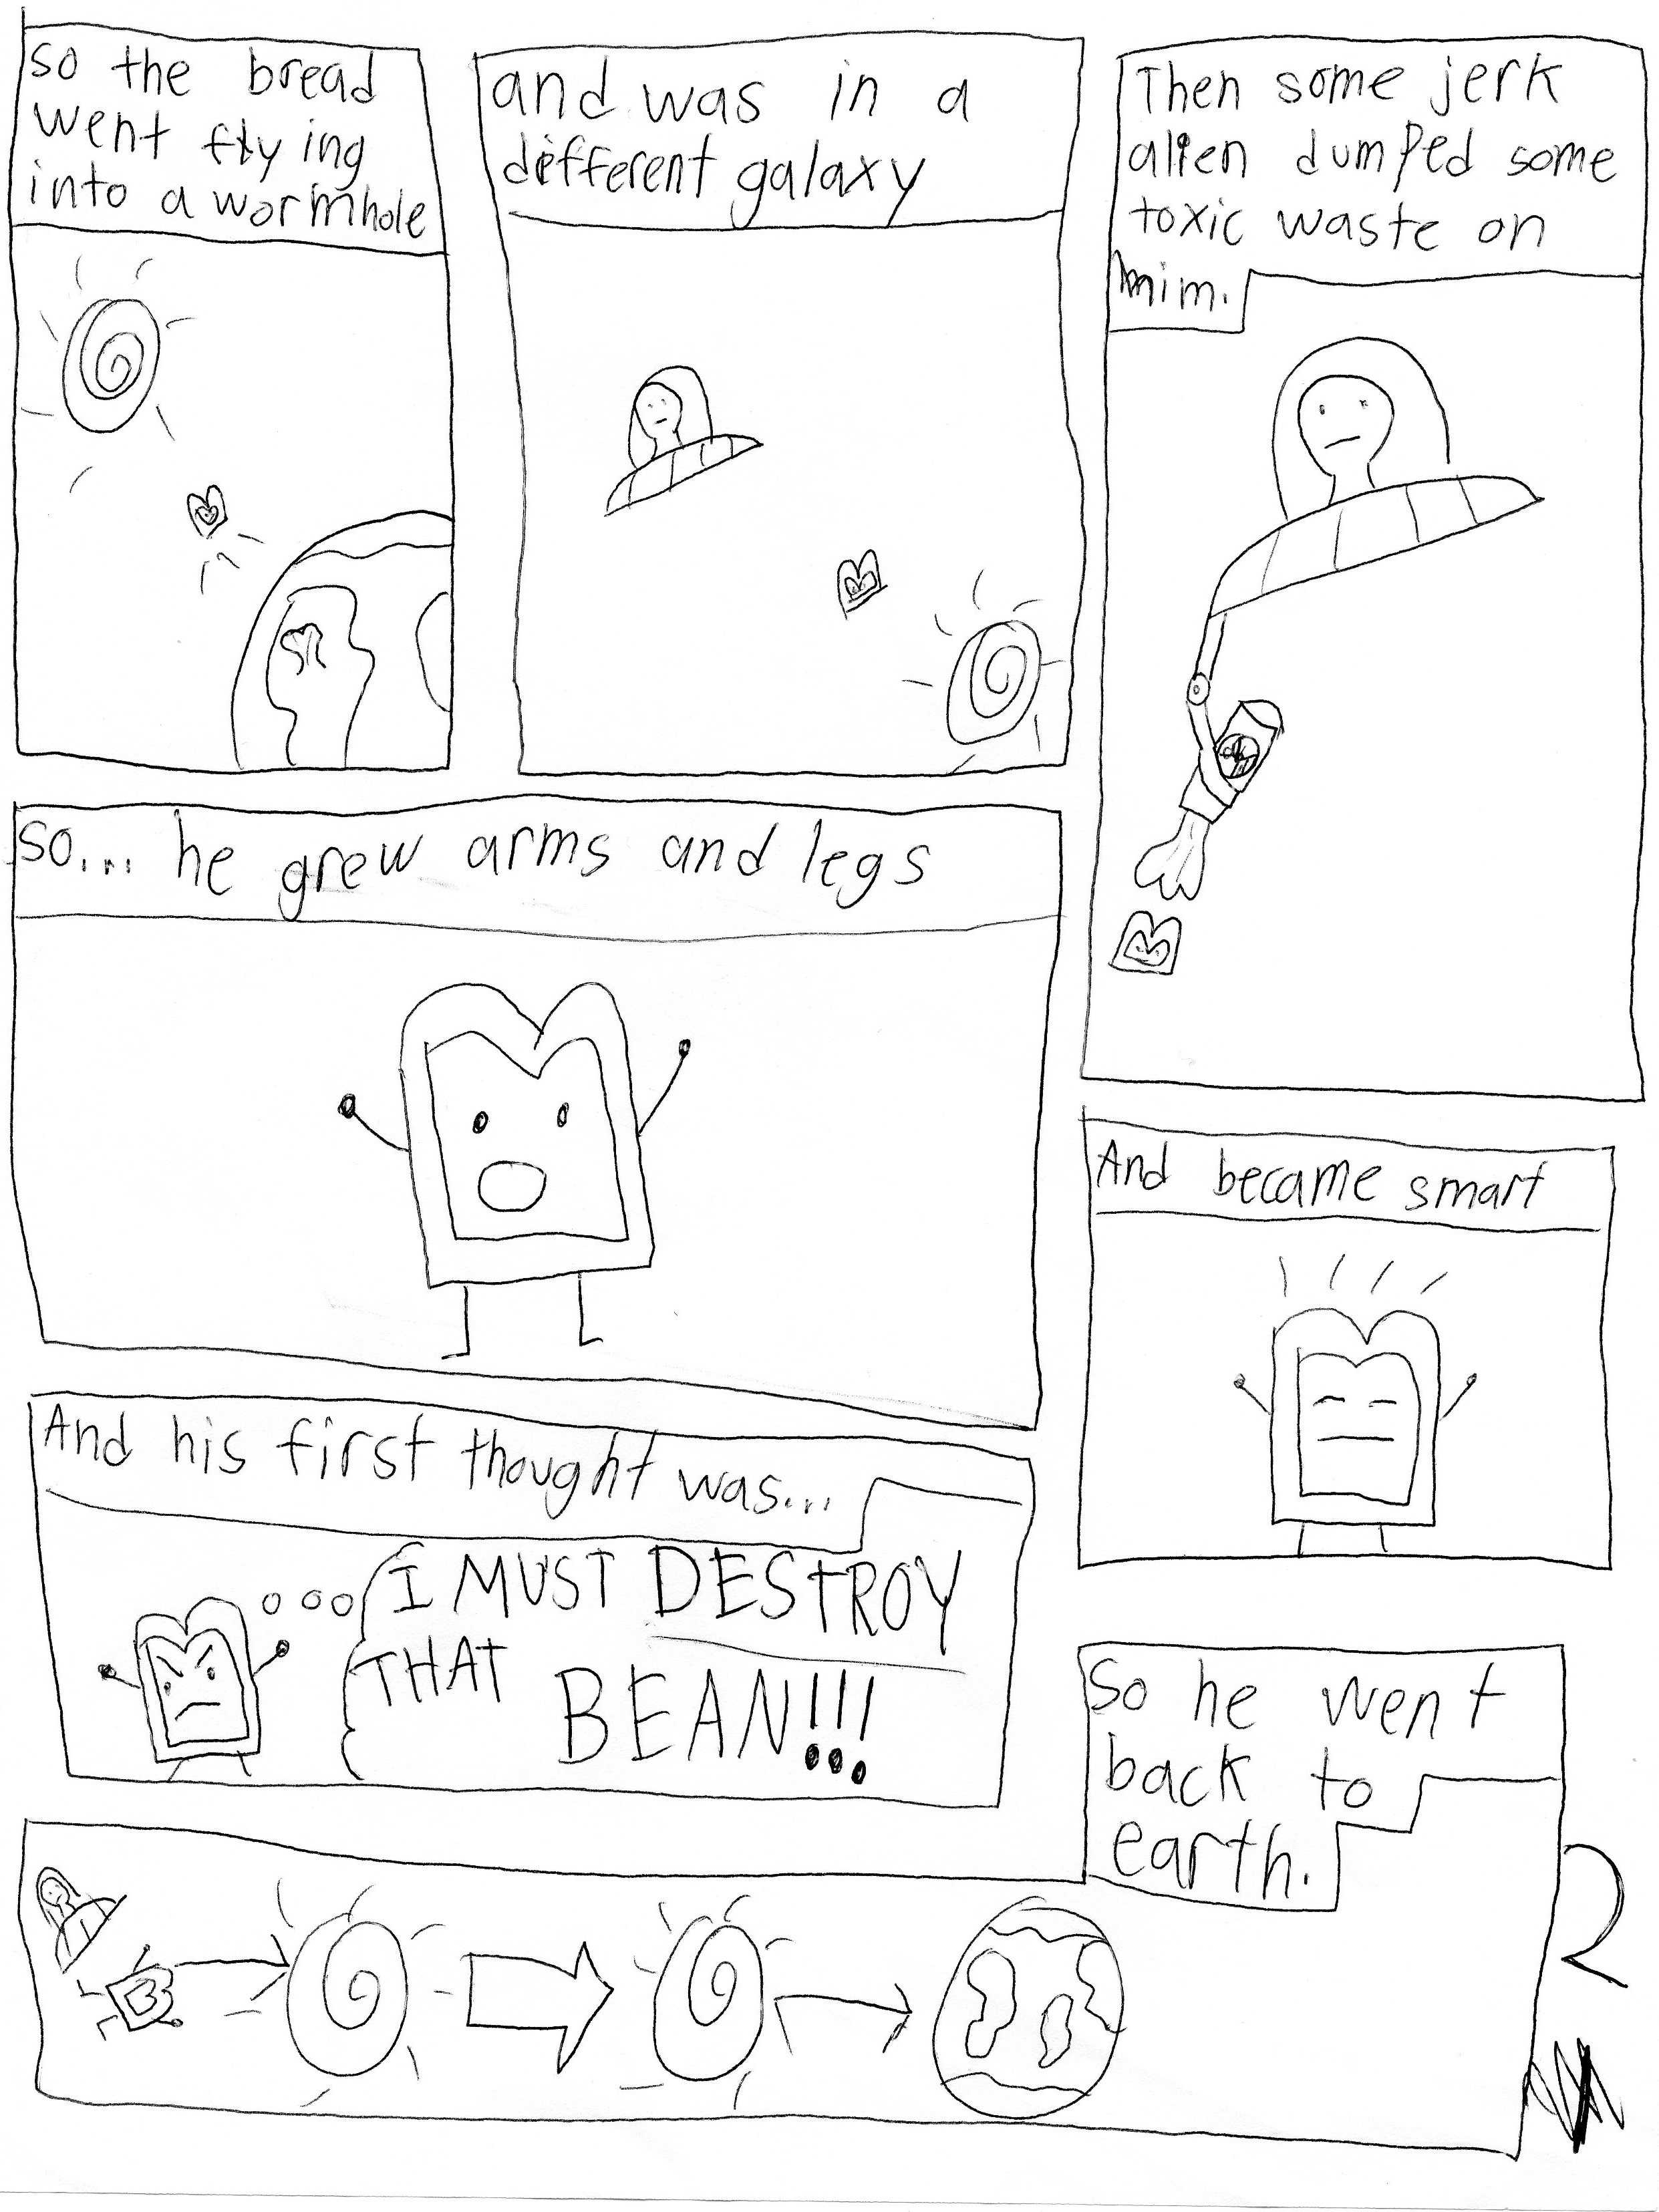 so the bread
went flying
into a wormhole
and was in a
different galaxy
Then some jerk
alien dumped some
toxic waste on
him.
so... he grew arms and legs
And became smart
And his first thought was...
I MUST DESTROY
THAT
BEAN!!!
So he went
back to
earth.
2